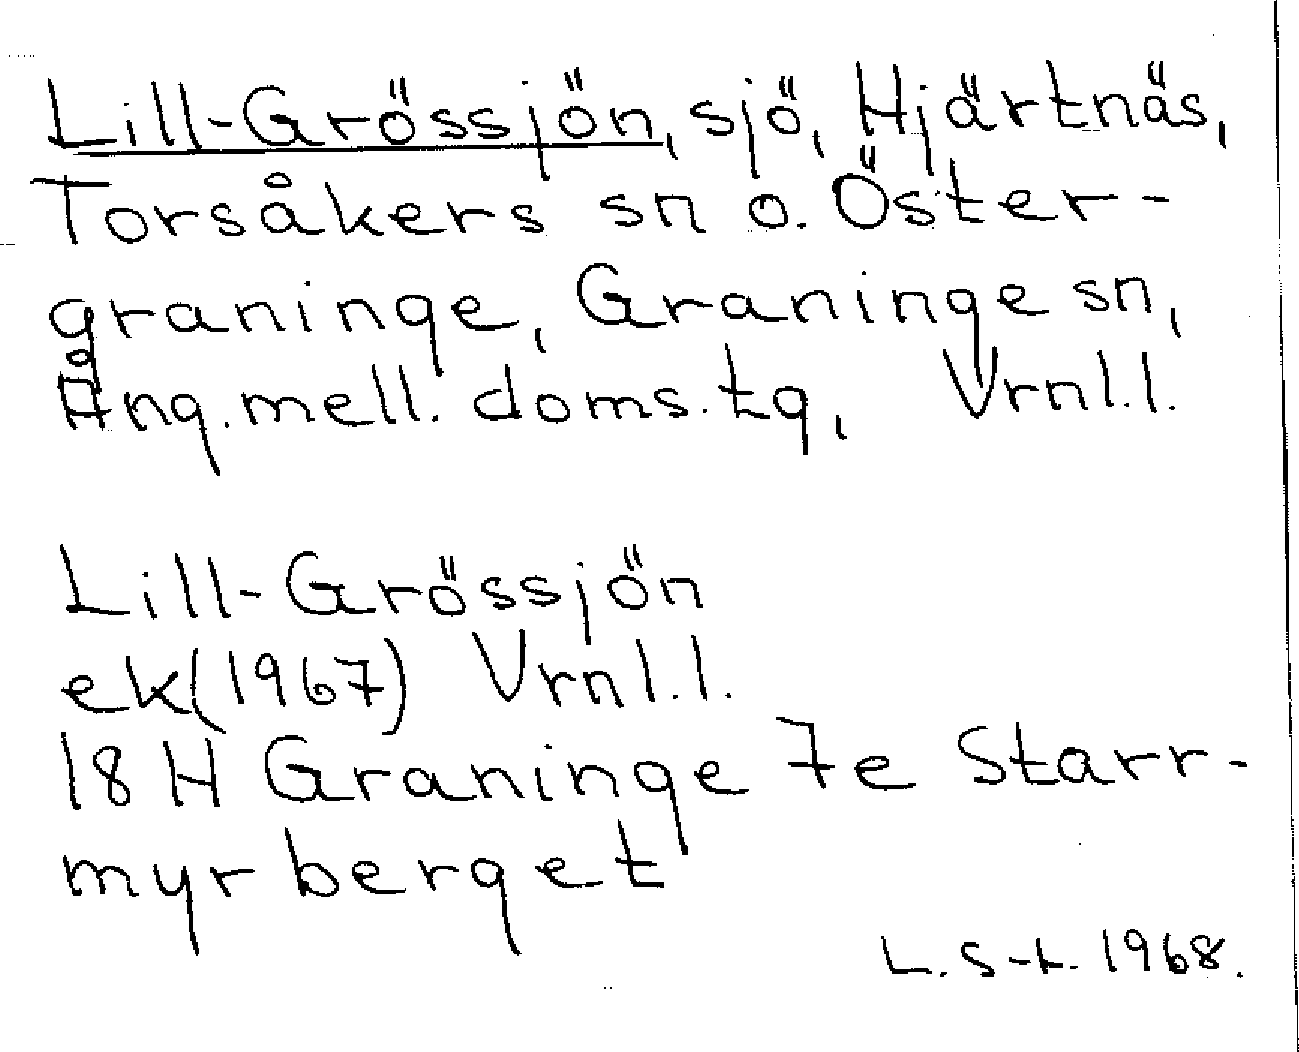 Lill-Grössjön, sjö, Hjärtnäs,
Torsåkers sn o. Öster-
graninge, Graninge sn,
Ång.mell. doms.tg, Vrnl.l.
Lill-Grössjön
ek(1967) Vrnl.l.
18 H Graninge 7e Starr-
myrberget
L. S-t. 1968.